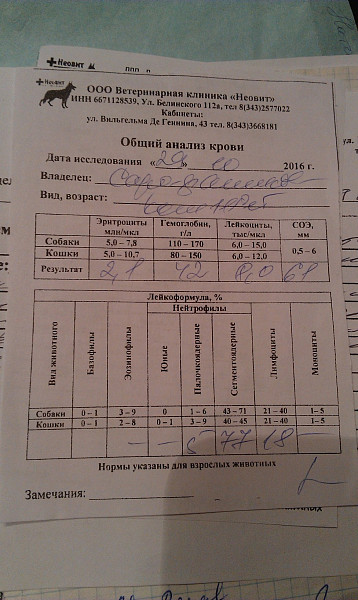 Неовит
Неовит
ООО Ветеринарная клиника «Неовит»
ИНН 6671128539, Ул. Белинского 112а, тел 8(343)2577022
Кабинеты:
ул. Вильгельма Де Геннина, 43 тел. 8(343)3668181
Общий анализ крови
Дата исследования «29» 10 2016 г.
Владелец:
Вид, возраст:
Эритроциты млн/мкл Гемоглобин, г/л Лейкоциты, тыс/мкл СОЭ, мм
Собаки 5,0 – 7,8 110 – 170 6,0 – 15,0 0,5 – 6
Кошки 5,0 – 10,7 80 – 150 6,0 – 12,0
Результат 2,1 42 61
Лейкоформула, %
Нейтрофилы
Вид животного Базофилы Эозинофилы Юные Палочкоядерные Сегментоядерные Лимфоциты Моноциты
Собаки 0 – 1 3 – 9 0 1 – 6 43 – 71 21 – 40 1– 5
Кошки 0 – 1 2 – 8 0 – 1 3 – 9 40 – 45 21 – 40 1– 5
– – 5 77 18 –
Нормы указаны для взрослых животных
Замечания: